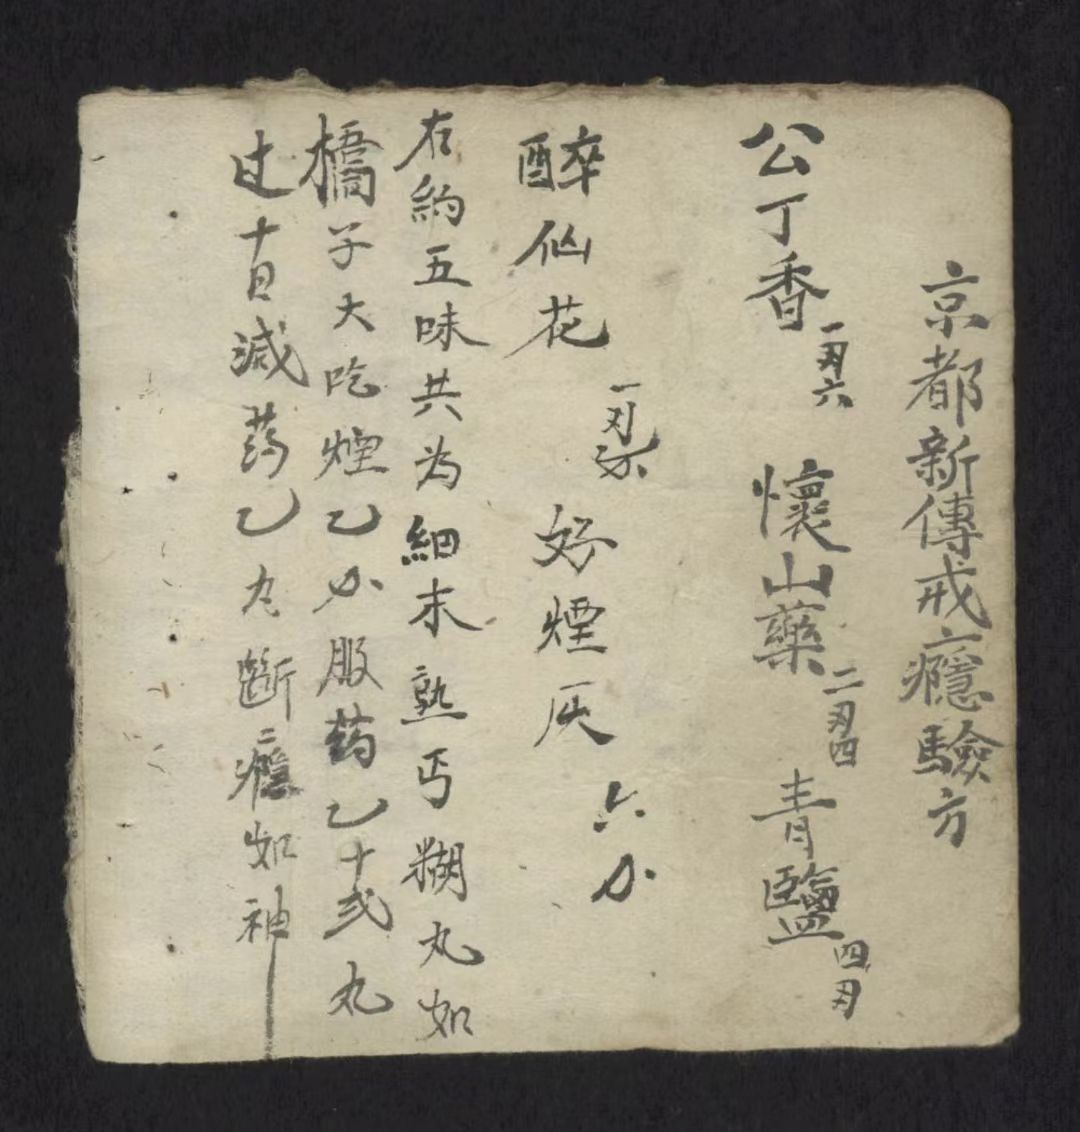 京都新傳戒癮驗方
公丁香 一刃六 懷山藥 二刃四 青鹽 四刃
醉仙花 一刃 好煙灰 六分
右約五味共为細末熟丐糊丸如
橘子大吃煙乙分服药乙十弍丸
过十日减药乙九斷癮如神